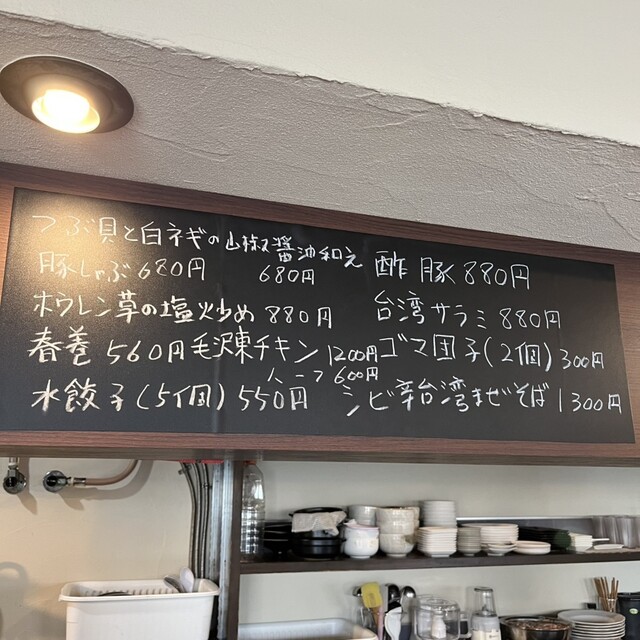 つぶ貝と白ネギの山椒醤油和え
680円
豚しゃぶ680円
ホウレン草の塩炒め 880円
春巻 560円
毛沢東チキン 1200円
ハーフ 600円
水餃子(5個)550円
酢豚880円
台湾サラミ 880円
ゴマ団子(2個)300円
シビ辛台湾まぜそば1300円